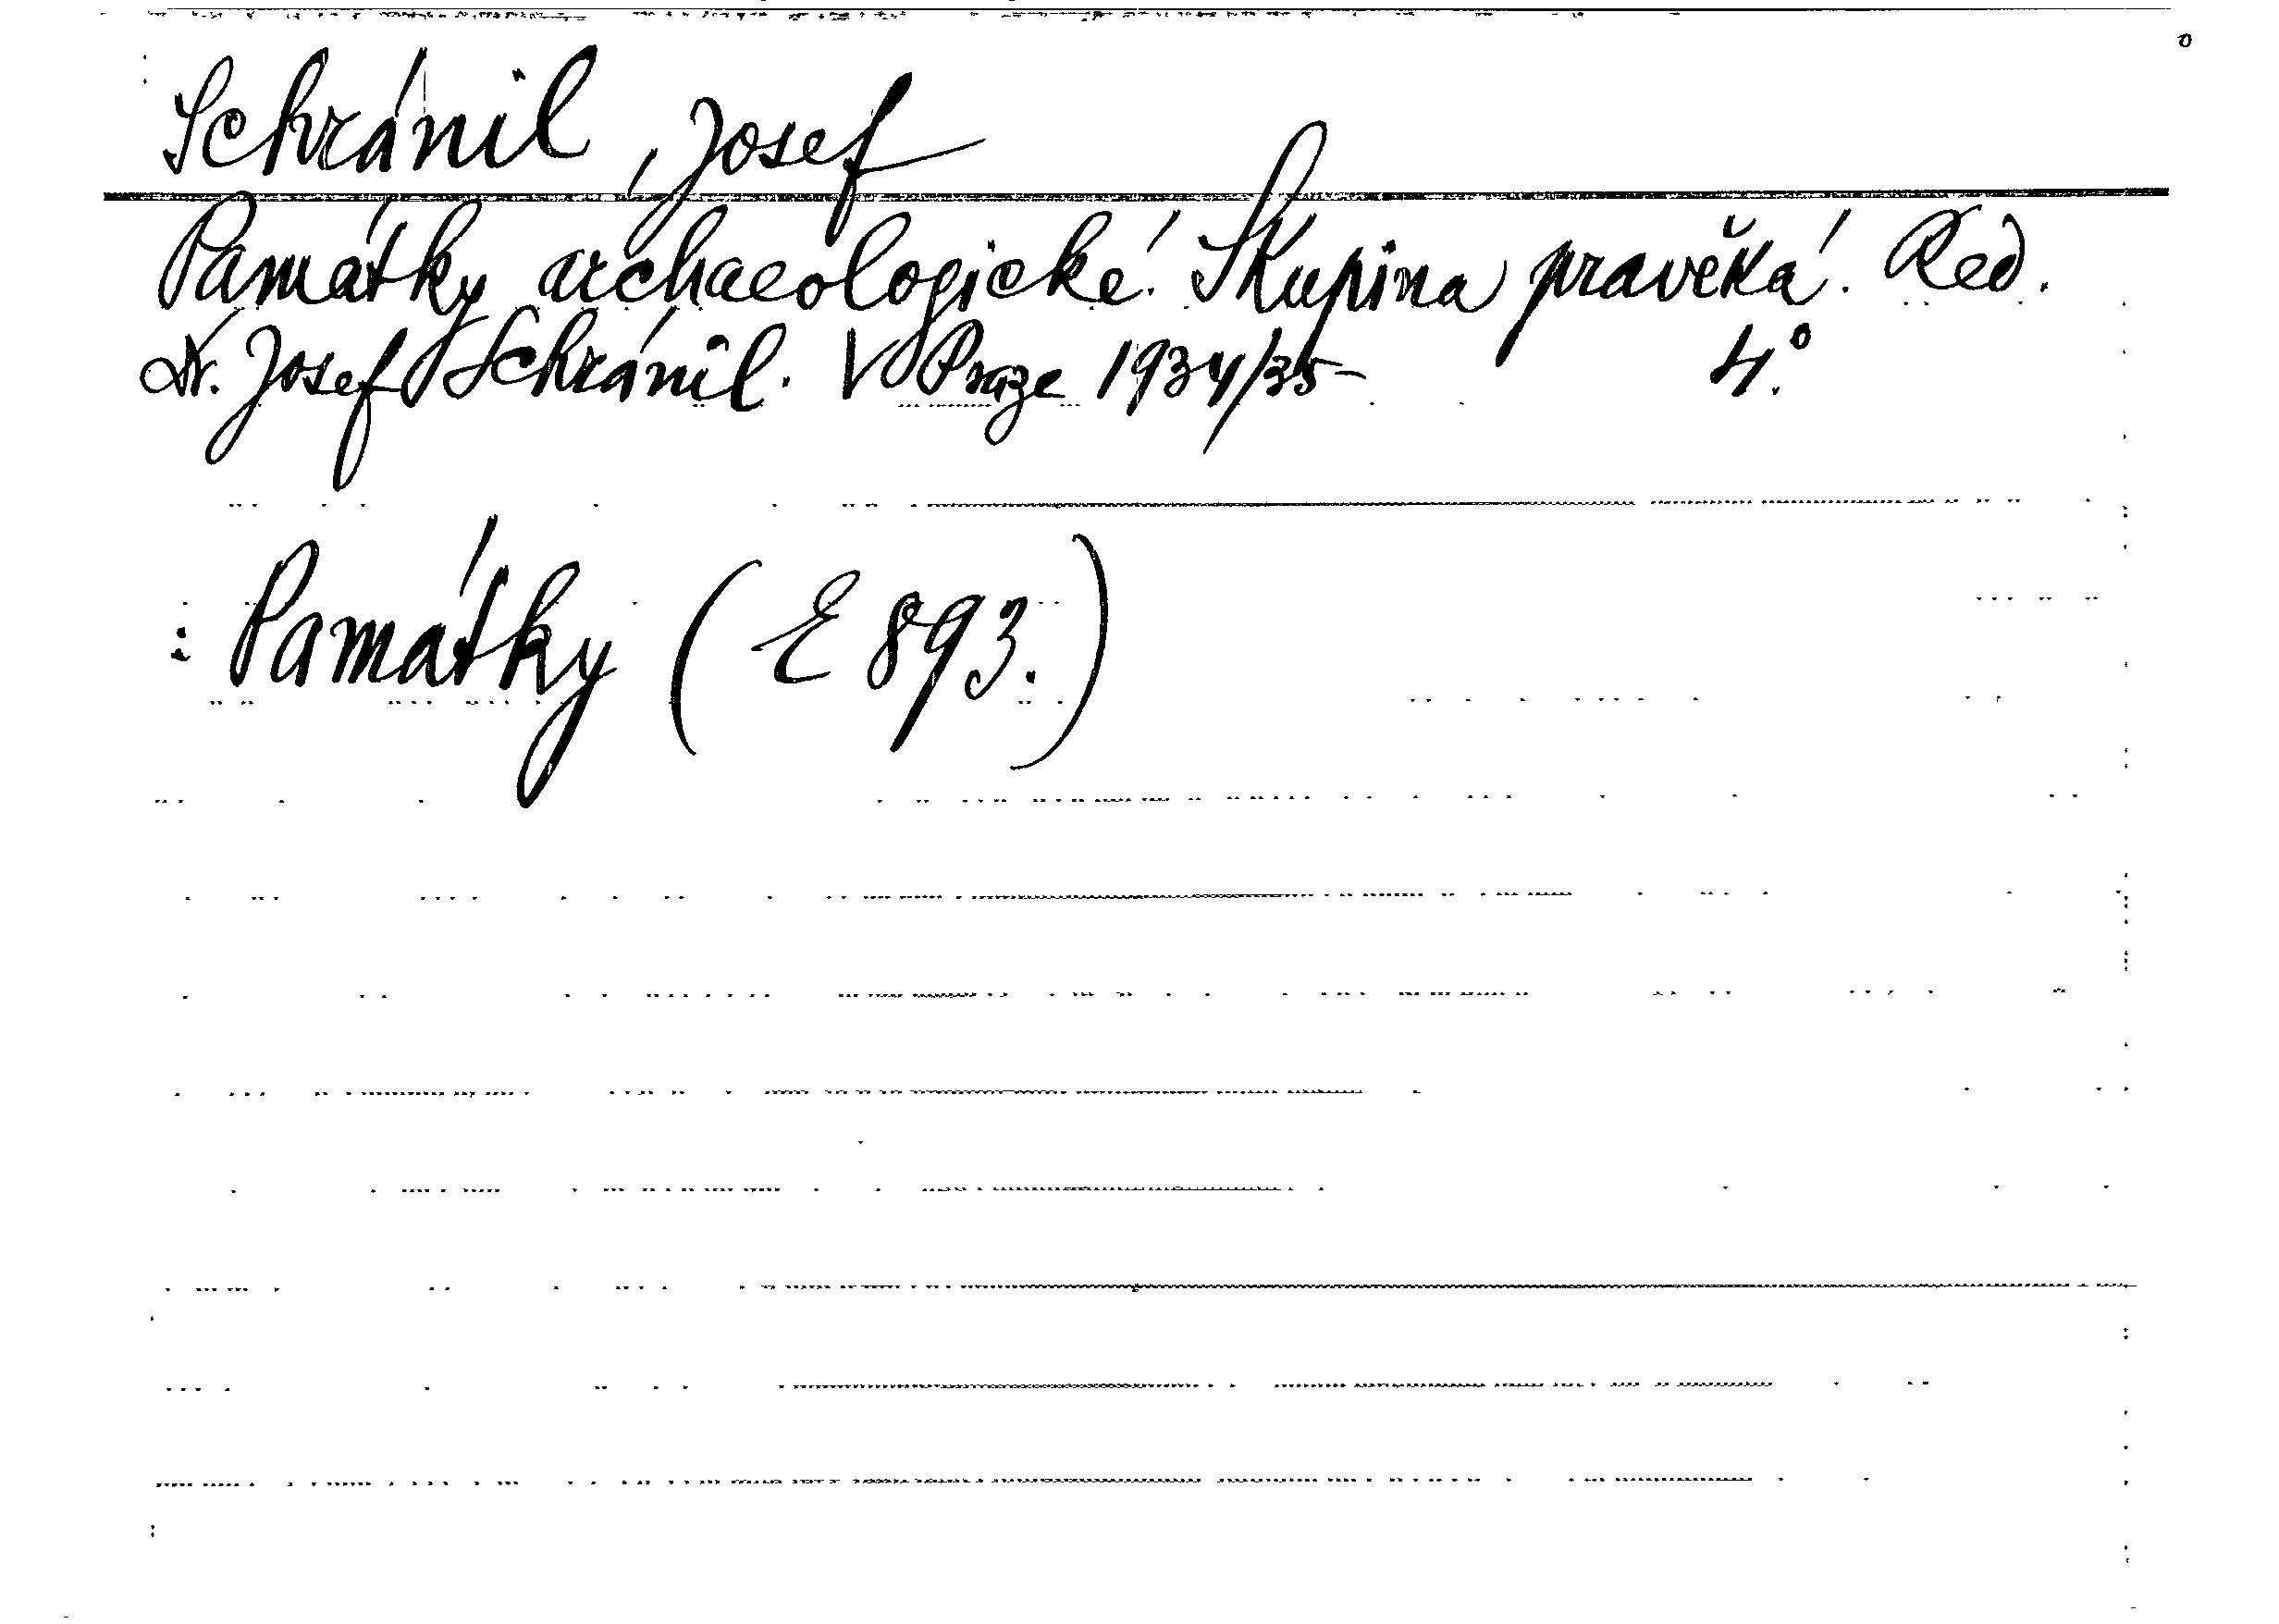 Schránil, Josef
Památky archaeologické. Skupina pravěká. Red.
Dr. Josef Schránil. V Praze 1934/35- 4.°
: Památky (E 893.)